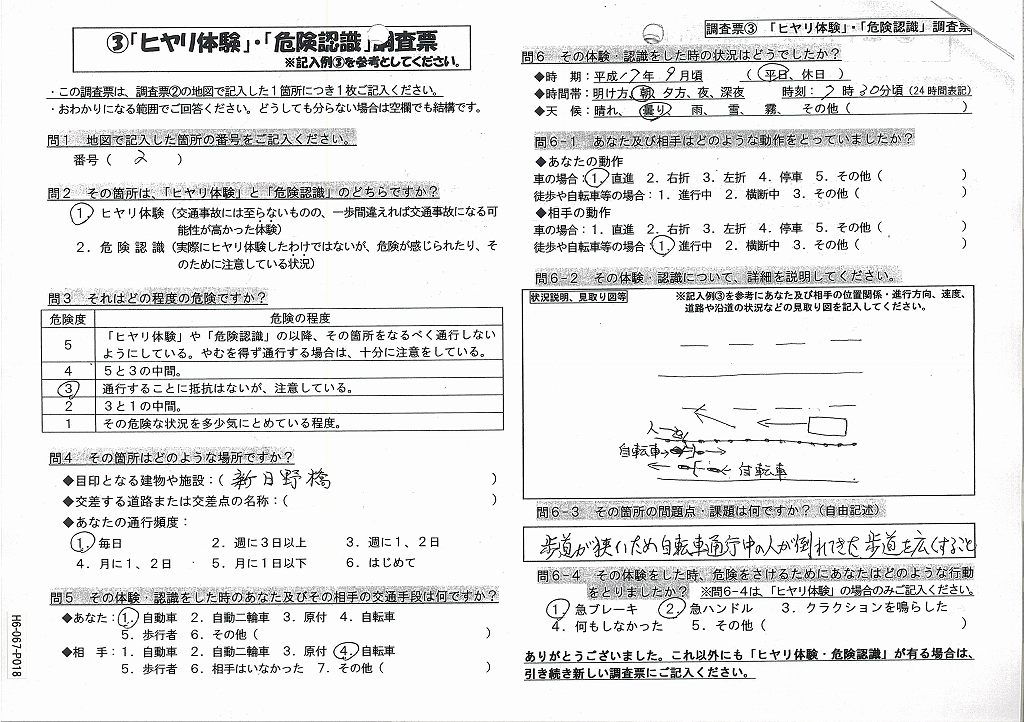 ③「ヒヤリ体験」・「危険認識」調査票
※記入例③を参考としてください。
・この調査票は、調査票②の地図で記入した1箇所につき1枚ご記入ください。
・おわかりになる範囲でご回答ください。どうしても分らない場合は空欄でも結構です。
問1 地図で記入した箇所の番号をご記入ください。
番号（ 2 ）
問2 その箇所は、「ヒヤリ体験」と「危険認識」のどちらですか？
1．ヒヤリ体験（交通事故には至らないものの、一歩間違えれば交通事故になる可
能性が高かった体験）
2．危険認識（実際にヒヤリ体験したわけではないが、危険が感じられたり、そ
のために注意している状況）
問3 それはどの程度の危険ですか？
危険度 危険の程度
5 「ヒヤリ体験」や「危険認識」の以降、その箇所をなるべく通行しない
ようにしている。やむを得ず通行する場合は、十分に注意をしている。
4 5と3の中間。
3 通行することに抵抗はないが、注意している。
2 3と1の中間。
1 その危険な状況を多少気にとめている程度。
問4 その箇所はどのような場所ですか？
◆目印となる建物や施設：（ 新日野橋 ）
◆交差する道路または交差点の名称：（ ）
◆あなたの通行頻度：
1．毎日 2．週に3日以上 3．週に1、2日
4．月に1、2日 5．月に1日以下 6．はじめて
問5 その体験・認識をした時のあなた及びその相手の交通手段は何ですか？
◆あなた：1．自動車 2．自動二輪車 3．原付 4．自転車
5．歩行者 6．その他（ ）
◆相 手：1．自動車 2．自動二輪車 3．原付 4．自転車
5．歩行者 6．相手はいなかった 7．その他（ ）
H6-067-P018
調査票③ 「ヒヤリ体験」・「危険認識」調査票
問6 その体験・認識をした時の状況はどうでしたか？
◆時 期：平成17年 9月頃 （ 平日、休日 ）
◆時間帯：明け方、朝、夕方、夜、深夜 時刻：7時30分頃（24時間表記）
◆天 候：晴れ、曇り、 雨、 雪、 霧、 その他（ ）
問6-1 あなた及び相手はどのような動作をとっていましたか？
◆あなたの動作
車の場合：1．直進 2．右折 3．左折 4．停車 5．その他（ ）
徒歩や自転車等の場合：1．進行中 2．横断中 3．その他（ ）
◆相手の動作
車の場合：1．直進 2．右折 3．左折 4．停車 5．その他（ ）
徒歩や自転車等の場合：1．進行中 2．横断中 3．その他（ ）
問6-2 その体験・認識について、詳細を説明してください。
状況説明、見取り図等 ※記入例③を参考にあなた及び相手の位置関係・進行方向、速度、
道路や沿道の状況などの見取り図を記入してください。
人
自転車
自転車
問6-3 その箇所の問題点・課題は何ですか？（自由記述）
歩道が狭いため自転車通行中の人が倒れてきた 歩道を広くすること
問6-4 その体験をした時、危険をさけるためにあなたはどのような行動
をとりましたか？ ※問6-4は、「ヒヤリ体験」の場合のみご記入ください。
1．急ブレーキ 2．急ハンドル 3．クラクションを鳴らした
4．何もしなかった 5．その他（ ）
ありがとうございました。これ以外にも「ヒヤリ体験・危険認識」が有る場合は、
引き続き新しい調査票にご記入ください。